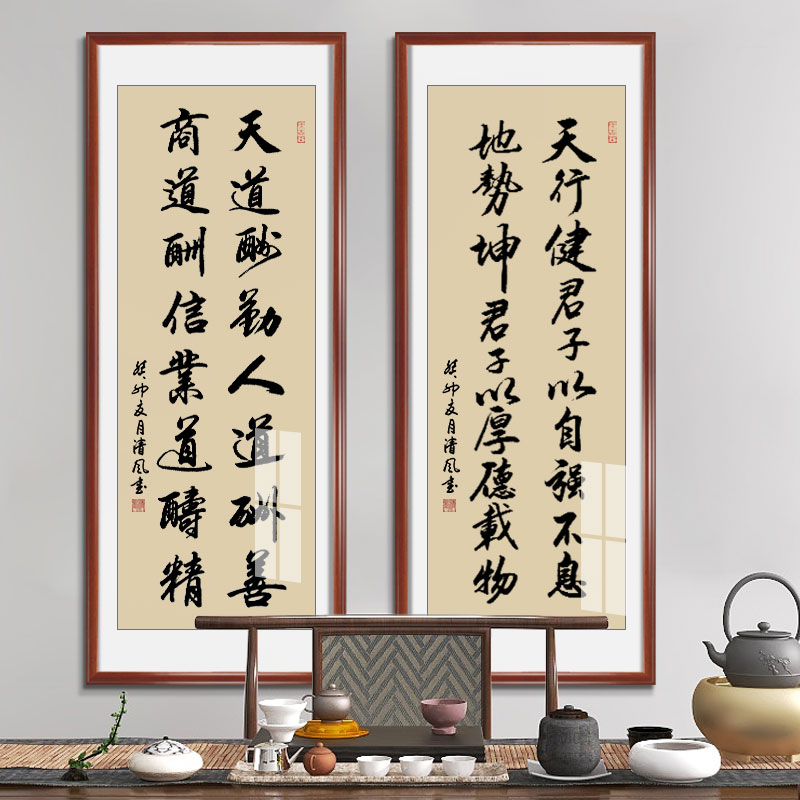 天行健君子以自强不息
地勢坤君子以厚德載物
癸卯夏月清风书
天道酬勤人道酬善
商道酬信業道醻精
癸卯夏月清风书